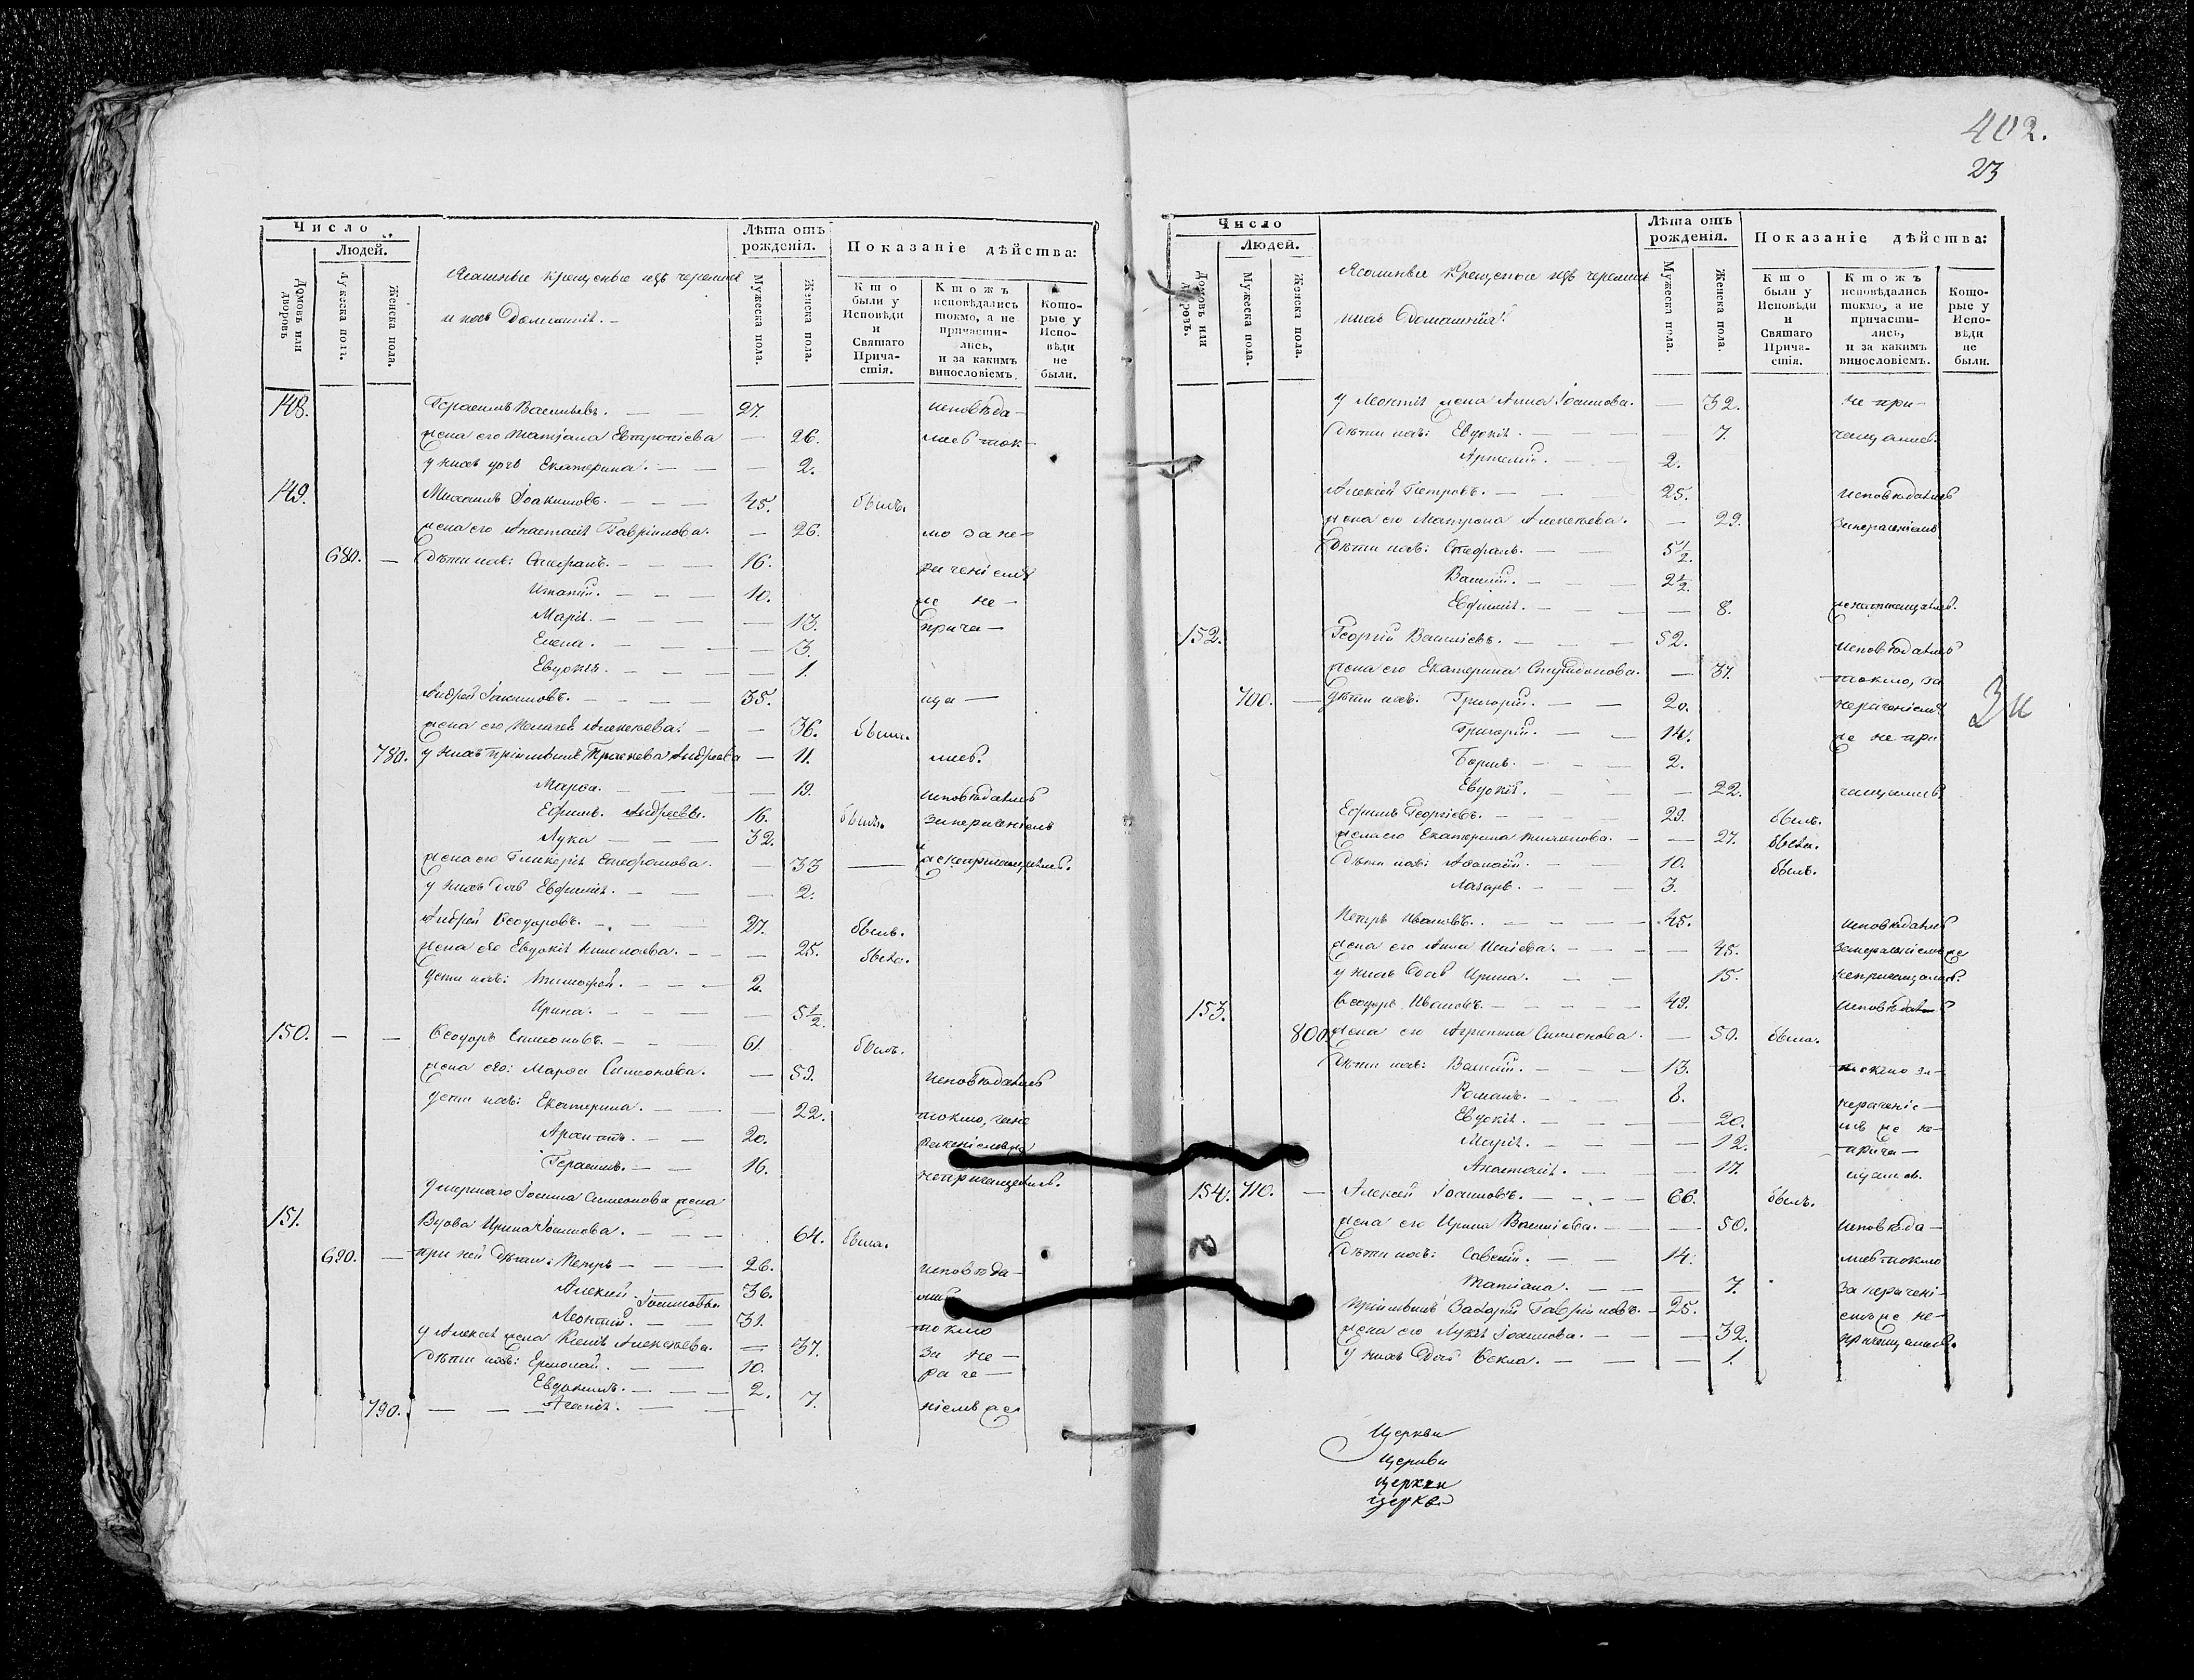 402.
23
Число
Людей.
Домовъ или дворовъ
Мужеска полъ.
Женска пола.
Ясашные крещеные изъ черемисъ
и ихъ домашніе.
Лѣта отъ рожденія.
Мужеска пола.
Женска пола.
Показаніе дѣйства:
Кто были у Исповѣди и Святаго Причастія.
Ктожъ исповѣдались токмо, а не причастились, и за какимъ винословіемъ.
Которые у Исповѣди не были.
148. Герасимъ Васильевъ. 27. исповѣда-
жена его Татіана Евтропіева 26. лись ток-
у нихъ дочь Екатерина. 2.
149. Михаилъ Іоакимовъ. 45. былъ.
жена его Анастасія Гавріилова. 26. мо за не-
680. дѣти ихъ: Стефанъ. 16. раченіемъ
Игнатій. 10. же не-
Марія. 13. прича-
Елена. 3.
Евдокія. 1.
Андрей Іакимовъ. 35. ща-
жена его Пелагія Алексѣева. 36. была.
780. у нихъ пріимышъ Андреева 11. лись.
Марѳа. 19. исповѣдались
Ефимъ. Андреевъ. 16. былъ. занераченіемъ
Лука 32.
жена его Гликерія Стефанова. 33 же непричащались.
у нихъ дочь Евфимія. 2.
Андрей Ѳеодоровъ. 27. былъ.
жена его Евдокія Николаева. 25. была.
дети ихъ: Тимофей. 2.
Ирина. 5½.
150. Ѳеодоръ Симоновъ. 61. былъ.
жена его: Марѳа Симеонова. 59. исповѣдались
дети ихъ: Екатерина. 22. токмо, зане
20. раченіемъ же
Герасимъ. 16. непричащались.
Умершаго Іоанна Симеонова жена
151. Вдова Ирина Іоаннова. 64. была.
690. при ней дѣти: Петръ 26. исповѣда-
Алексій. 36.
Іоанновы.
Леонтій. 31. токмо
у Алексія жена Ксенія Алексѣева. 37. за не-
дѣти ихъ: Ермолай. 10. раче-
Евдокимъ. 2.
790. Агапія. 7. ніемъ же
Число
Людей.
Домовъ или дворовъ.
Мужеска пола.
Женска пола.
Ясашные крещеные изъ черемисъ
ихъ домашнія.
Лѣта отъ рожденія.
Мужеска пола.
Женска пола.
Показаніе дѣйства:
Кто были у Исповѣди и Святаго Причастія.
Ктожъ исповѣдались токмо, а не причастились, и за какимъ винословіемъ.
Которые у Исповѣди не были.
у Леонтія жена Анна Іоаннова. 32. не при-
дѣти ихъ: Евдокія. 7. чащались.
Артемій. 2.
Алексій Петровъ. 25. исповѣдались
жена его Матрона Алексѣева. 29. занераченіемъ
дѣти ихъ: Стефанъ. 5½.
Василій. 2½.
Евфимія. 8. же непричащались.
152. Георгій Василіевъ. 52. исповѣдались
жена его Екатерина Спиридонова. 37. токмо, за
700. дѣти ихъ: Григорій. 20. нераченіемъ
Григорій. 14. же не при
Борисъ. 2.
Евдокія. 22. чащались.
Ефимъ Георгіевъ. 29. былъ.
жена его Екатерина Тихонова. 27. была.
дѣти ихъ: Аѳанасій. 10. былъ.
Лазарь. 3.
Петръ Ивановъ. 45. исповѣдались
жена его Анна Иліева. 45. занераченіемъ же
у нихъ дочь Ирина. 15. непричащались.
153. Ѳеодоръ Ивановъ. 49. исповѣдались
800. жена его Агрипина Симеонова. 50. была.
дѣти ихъ: Василій. 13. токмо за-
Романъ. 8. нераченіе-
Евдокія. 20. мъ же не-
Марія. 12. прича-
Анастасія. 17. щались.
154. 710. Алексей Іоанновъ. 66. былъ.
жена его Ирина Василіева. 50. исповѣда-
дѣти ихъ: Савелій. 14. лись токмо
Татіана. 7. за нерачені-
пріимышъ Захарій Гавріиловъ. 25. емъ же не-
жена его Лукія Іоаннова. 32. причащались.
у нихъ дочь Ѳекла. 1.
Зн
Церкви
Церкви
Церкви
Церкви